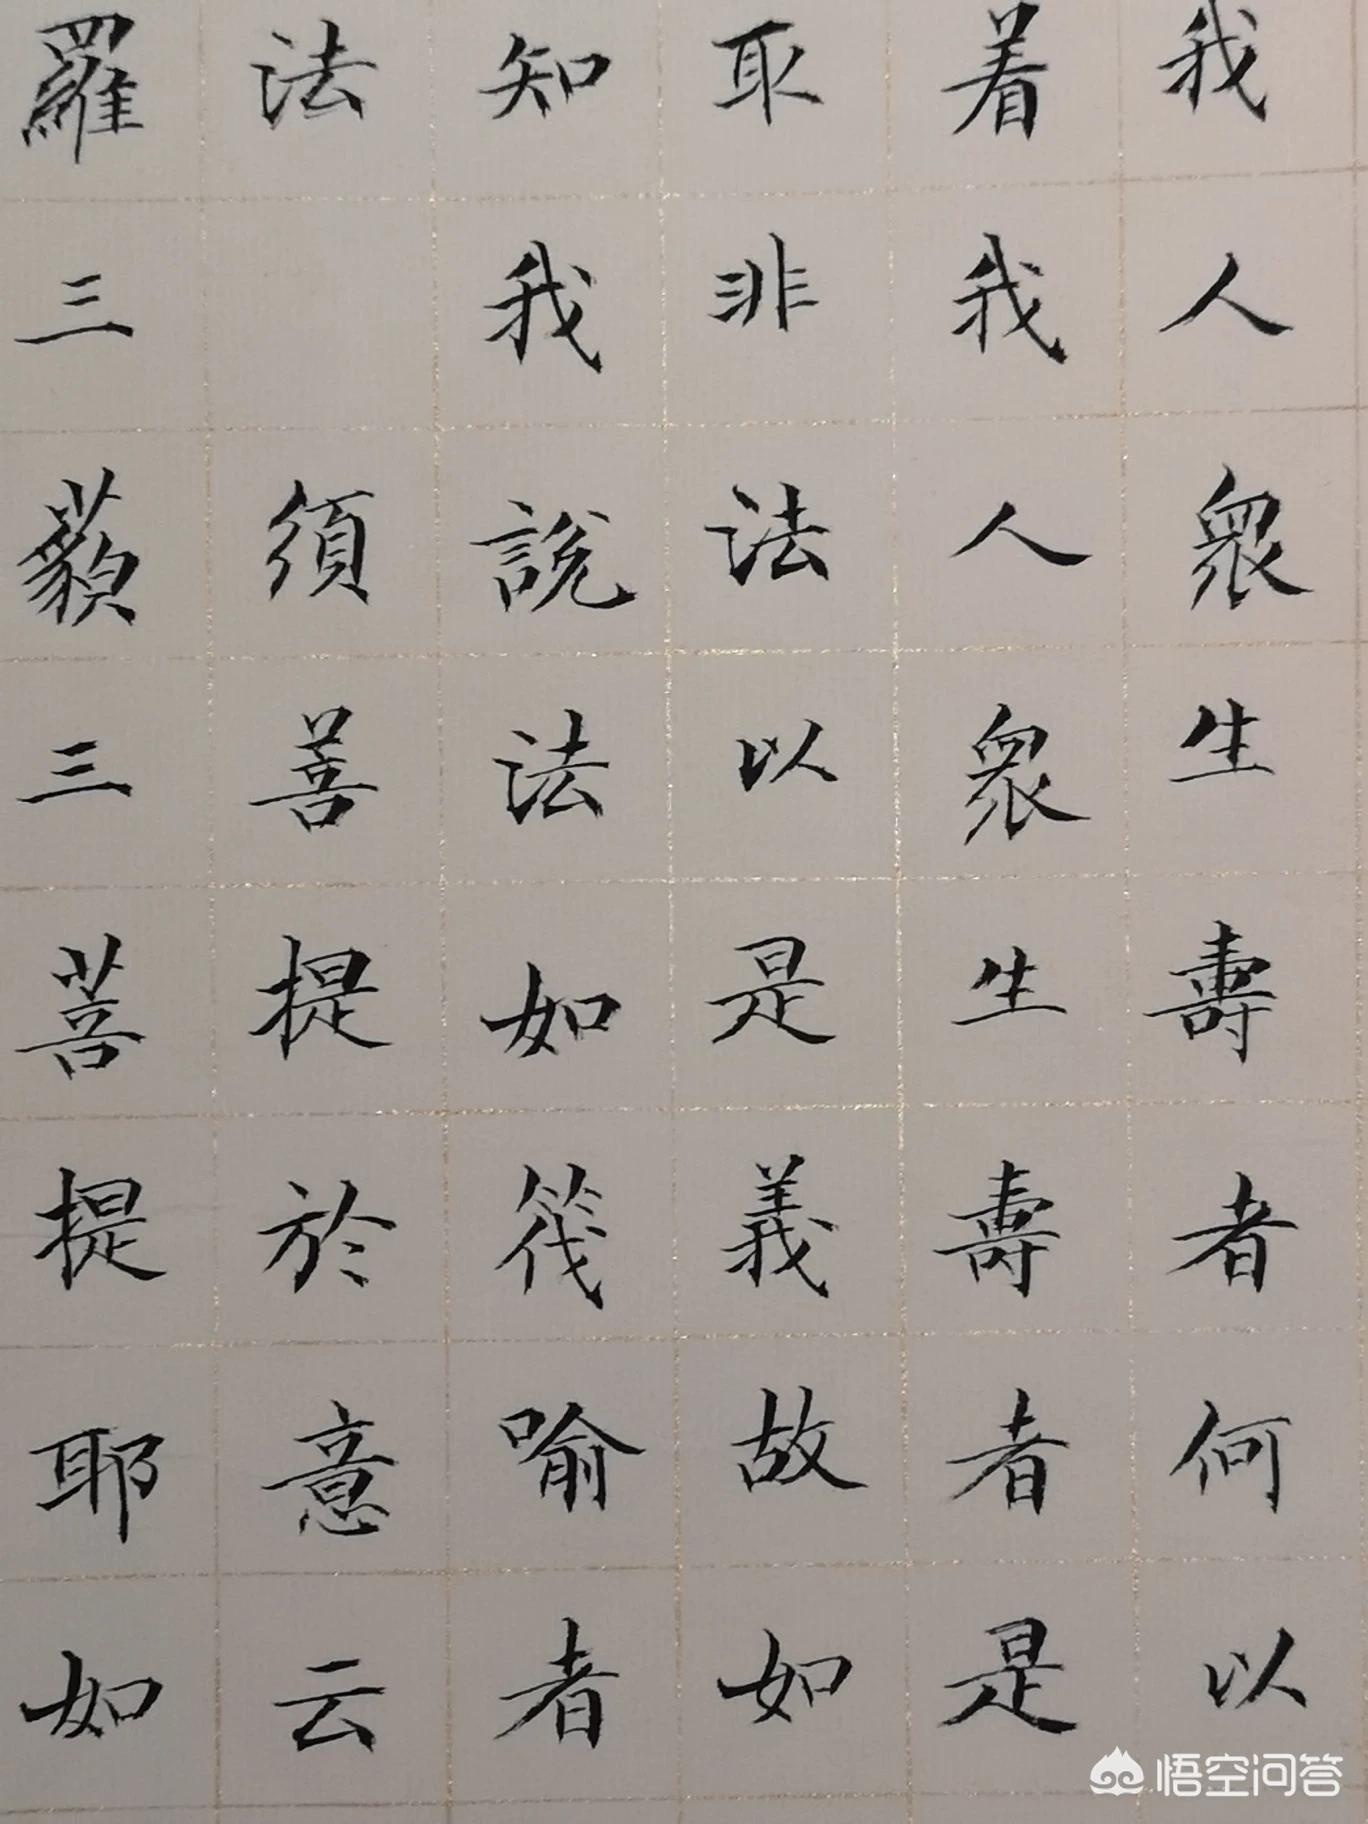 我人衆生壽者何以
着我人衆生壽者是
取非法以是義故如
知我說法如筏喻者
法 須菩提於意云
羅三藐三菩提耶如
悟空问答